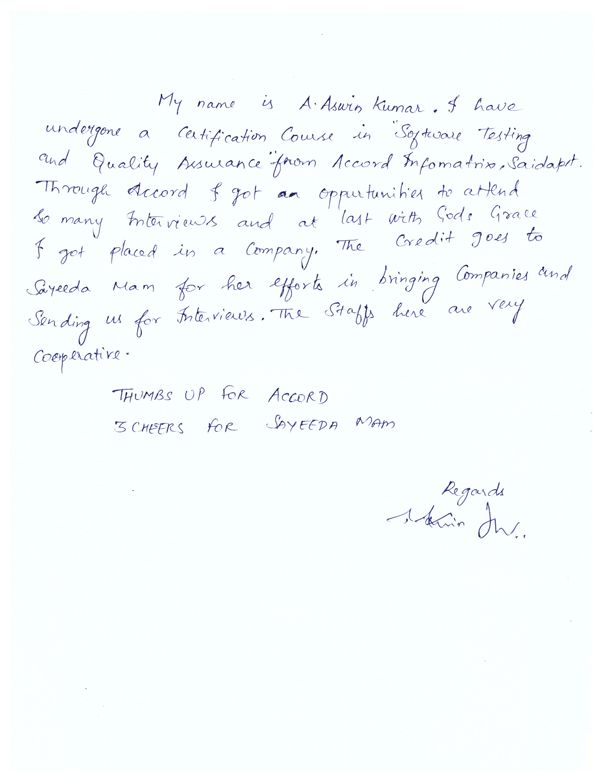 My name is A. Aswin Kumar. I have
undergone a Certification Course in "Software Testing
and Quality Assurance" from Accord Infomatrix, Saidapt.
Through Accord I got an oppurtunities to attend
so many Interviews and at last with Gods Grace
I got placed in a Company. The Credit goes to
Sayeeda Mam for her efforts in bringing Companies and
Sending us for Interviews. The Staffs here are very
Cooperative.
THUMBS UP FOR ACCORD
3 CHEERS FOR SAYEEDA MAM
Regards